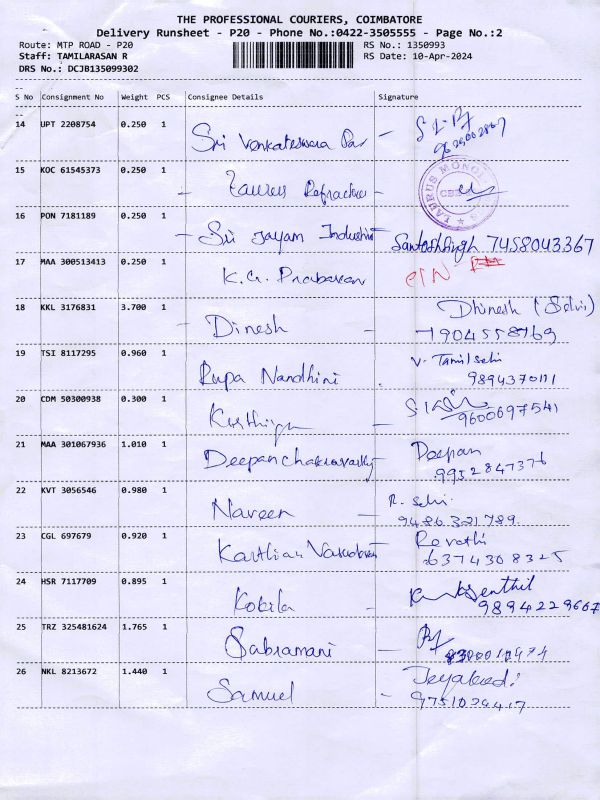 THE PROFESSIONAL COURIERS, COIMBATORE
Delivery Runsheet - P20 - Phone No.:0422-3505555 - Page No.:2
Route: MTP ROAD - P20 RS No.: 1350993
Staff: TAMILARASAN R RS Date: 10-Apr-2024
DRS No.: DCJB135099302
S No Consignment No Weight PCS Consignee Details Signature
14 UPT 2208754 0.250 1 Sri Venkateswara
15 KOC 61545373 0.250 1 Taurus Refractory
TAURUS
16 PON 7181189 0.250 1 Sri Jayam Industries Santosh Singh 7458043367
17 MAA 300513413 0.250 1 K.G. Prabakaran
18 KKL 3176831 3.700 1 Dinesh - Dhinesh (Selvi)
7904558769
19 TSI 8117295 0.960 1 Rupa Nandhini . V. Tamilselvi
9894370111
20 CDM 50300938 0.300 1 Karthiga -
9600697541
21 MAA 301067936 1.010 1 Deepan Chakravarthy Deepan
9952847376
22 KVT 3056546 0.980 1 Naveen - R. Selvi.
9486321789
23 CGL 697679 0.920 1 Karthian Vasudevan Revathi
6374308325
24 HSR 7117709 0.895 1 Kokila - Senthil
9894229667
25 TRZ 325481624 1.765 1 Sabramani -
26 NKL 8213672 1.440 1 Samuel -
9751029417